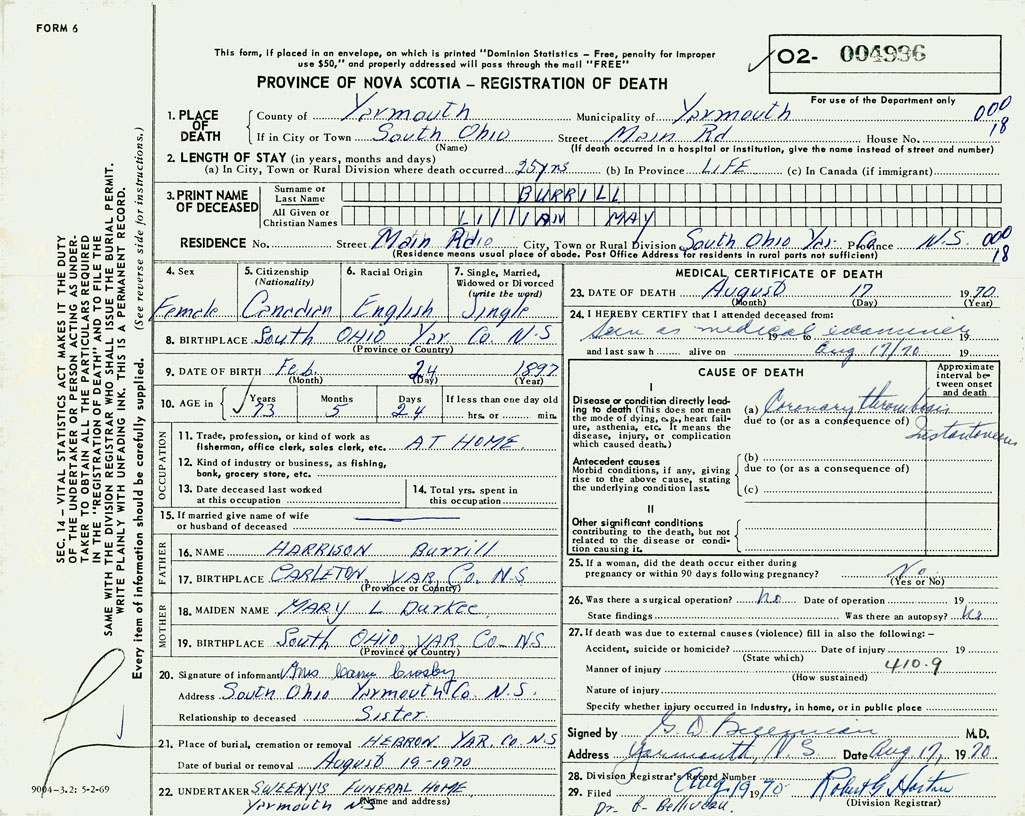 FORM 6
This form, if placed in an envelope, on which is printed "Dominion Statistics – Free, penalty for improper
use $50," and properly addressed will pass through the mail "FREE"
O2- 004936
For use of the Department only
PROVINCE OF NOVA SCOTIA – REGISTRATION OF DEATH
1. PLACE OF DEATH
County of Yarmouth Municipality of Yarmouth 000
If in City or Town South Ohio Street Main Rd House No. 18
(Name) (If death occurred in a hospital or institution, give the name instead of street and number)
2. LENGTH OF STAY (in years, months and days)
(a) In City, Town or Rural Division where death occurred 25 yrs (b) In Province LIFE (c) In Canada (if immigrant)
3. PRINT NAME OF DECEASED
Surname or Last Name BURRILL
All Given or Christian Names LILLIAN MAY
RESIDENCE No. Street Main Rd City, Town or Rural Division South Ohio Yar. Co. Province N.S. 000
(Residence means usual place of abode. Post Office Address for residents in rural parts not sufficient) 18
4. Sex
Female
5. Citizenship (Nationality)
Canadian
6. Racial Origin
English
7. Single, Married, Widowed or Divorced (write the word)
Single
8. BIRTHPLACE South OHIO Yar Co. N.S
(Province or Country)
9. DATE OF BIRTH Feb. 24 1897
(Month) (Day) (Year)
10. AGE in Years 73 Months 5 Days 24 If less than one day old hrs. or min.
OCCUPATION
11. Trade, profession, or kind of work as fisherman, office clerk, sales clerk, etc. AT HOME.
12. Kind of industry or business, as fishing, bank, grocery store, etc.
13. Date deceased last worked at this occupation
14. Total yrs. spent in this occupation
15. If married give name of wife or husband of deceased
FATHER
16. NAME HARRISON Burrill
17. BIRTHPLACE CARLETON, YAR. Co. N.S
(Province or Country)
MOTHER
18. MAIDEN NAME MARY L Durkee
19. BIRTHPLACE South OHIO, YAR. Co. N.S
(Province or Country)
20. Signature of informant Mrs Crosby
Address South Ohio Yarmouth Co. N.S.
Relationship to deceased Sister.
21. Place of burial, cremation or removal HEBRON YAR. CO. N.S
Date of burial or removal August 19-1970
22. UNDERTAKER SWEENY'S FUNERAL HOME
Yarmouth N.S (Name and address)
MEDICAL CERTIFICATE OF DEATH
23. DATE OF DEATH August 17 1970
(Month) (Day) (Year)
24. I HEREBY CERTIFY that I attended deceased from:
Seen as medical examiner 19 to 19
and last saw h alive on Aug 17/70 19
CAUSE OF DEATH
Approximate interval between onset and death
I
Disease or condition directly leading to death (This does not mean the mode of dying, e.g., heart failure, asthenia, etc. It means the disease, injury, or complication which caused death.)
(a) Coronary thrombosis
due to (or as a consequence of) Instantaneous
Antecedent causes
Morbid conditions, if any, giving rise to the above cause, stating the underlying condition last.
(b)
due to (or as a consequence of)
(c)
II
Other significant conditions contributing to the death, but not related to the disease or condition causing it.
25. If a woman, did the death occur either during pregnancy or within 90 days following pregnancy? No
(Yes or No)
26. Was there a surgical operation? No Date of operation 19
State findings Was there an autopsy? No
27. If death was due to external causes (violence) fill in also the following: –
Accident, suicide or homicide? Date of injury 19
(State which)
Manner of injury 410.9
(How sustained)
Nature of injury
Specify whether injury occurred in industry, in home, or in public place
Signed by G. D. Belliveau M.D.
Address Yarmouth, N.S. Date Aug 17, 1970
28. Division Registrar's Record Number
29. Filed Aug 19 1970
(Division Registrar)
Dr. Belliveau.
SEC. 14 – VITAL STATISTICS ACT MAKES IT THE DUTY
OF THE UNDERTAKER OR PERSON ACTING AS UNDERTAKER
TO OBTAIN ALL THE PARTICULARS REQUIRED
IN THE "REGISTRATION OF DEATH" AND TO FILE THE
SAME WITH THE DIVISION REGISTRAR WHO SHALL ISSUE THE BURIAL PERMIT.
WRITE PLAINLY WITH UNFADING INK. THIS IS A PERMANENT RECORD.
Every item of information should be carefully supplied. (See reverse side for instructions.)
9004-3.2: 5-2-69